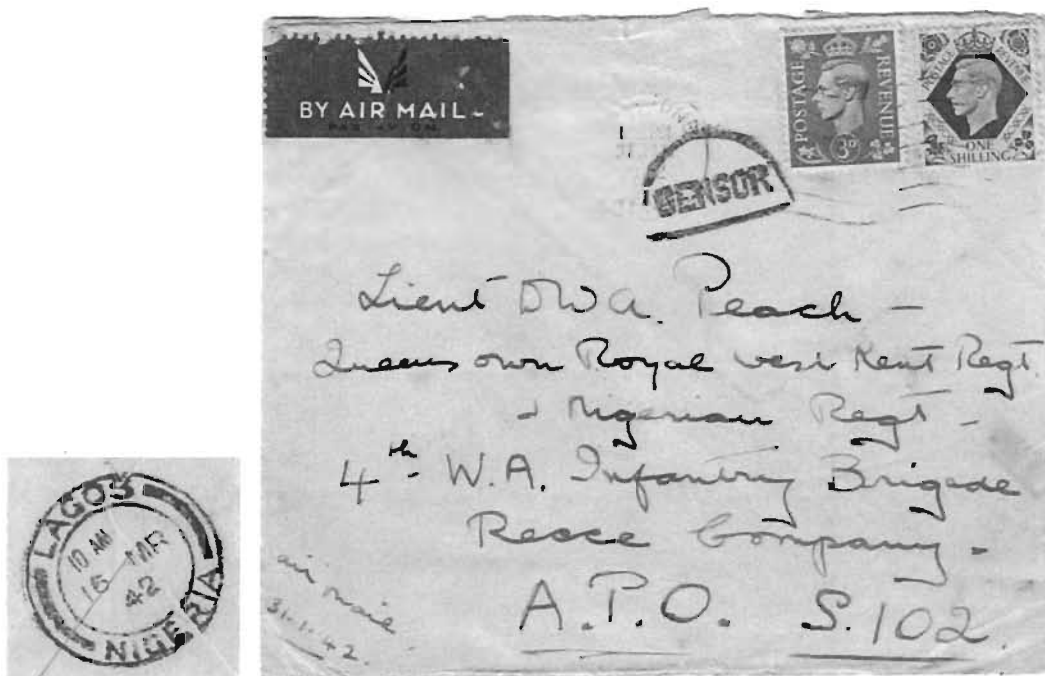 BY AIR MAIL
PAR AVION
POSTAGE REVENUE
3D
POSTAGE REVENUE
ONE SHILLING
CENSOR
Lieut D W A. Peach -
Queens own Royal west Kent Regt.
Nigerian Regt -
4th W.A. Infantry Brigade
Recce Company -
A.P.O. S.102.
air mail
31.1.42.
LAGOS
10 AM
16 MR
42
NIGERIA